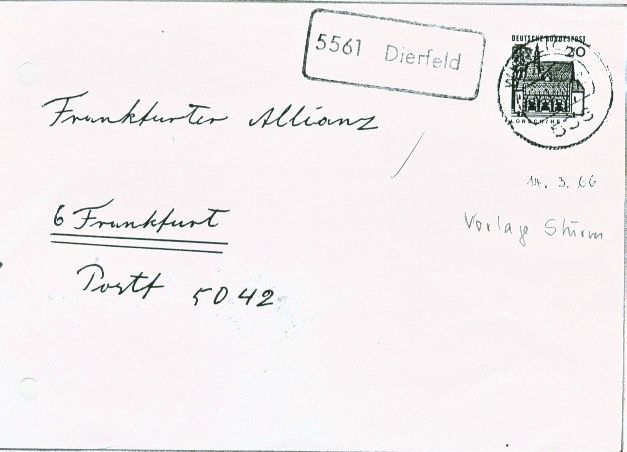 5561 Dierfeld
DEUTSCHE BUNDESPOST
20
LORSCH/HESSEN
Frankfurter Allianz
14. 3. 66
6 Frankfurt
Vorlage Sturm
Postf 5042